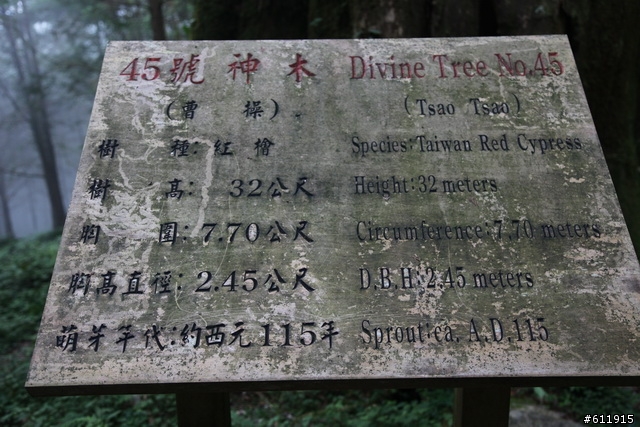 45號 神木 Divine Tree No.45
(曹 操) (Tsao Tsao)
樹 種:紅 檜 Species:Taiwan Red Cypress
樹 高: 32公尺 Height:32 meters
胸 圍:7.70公尺 Circumference:7.70 meters
胸高直徑:2.45公尺 D.B.H:2.45 meters
萌芽年代:約西元115年 Sprout:ca. A.D.115
#611915